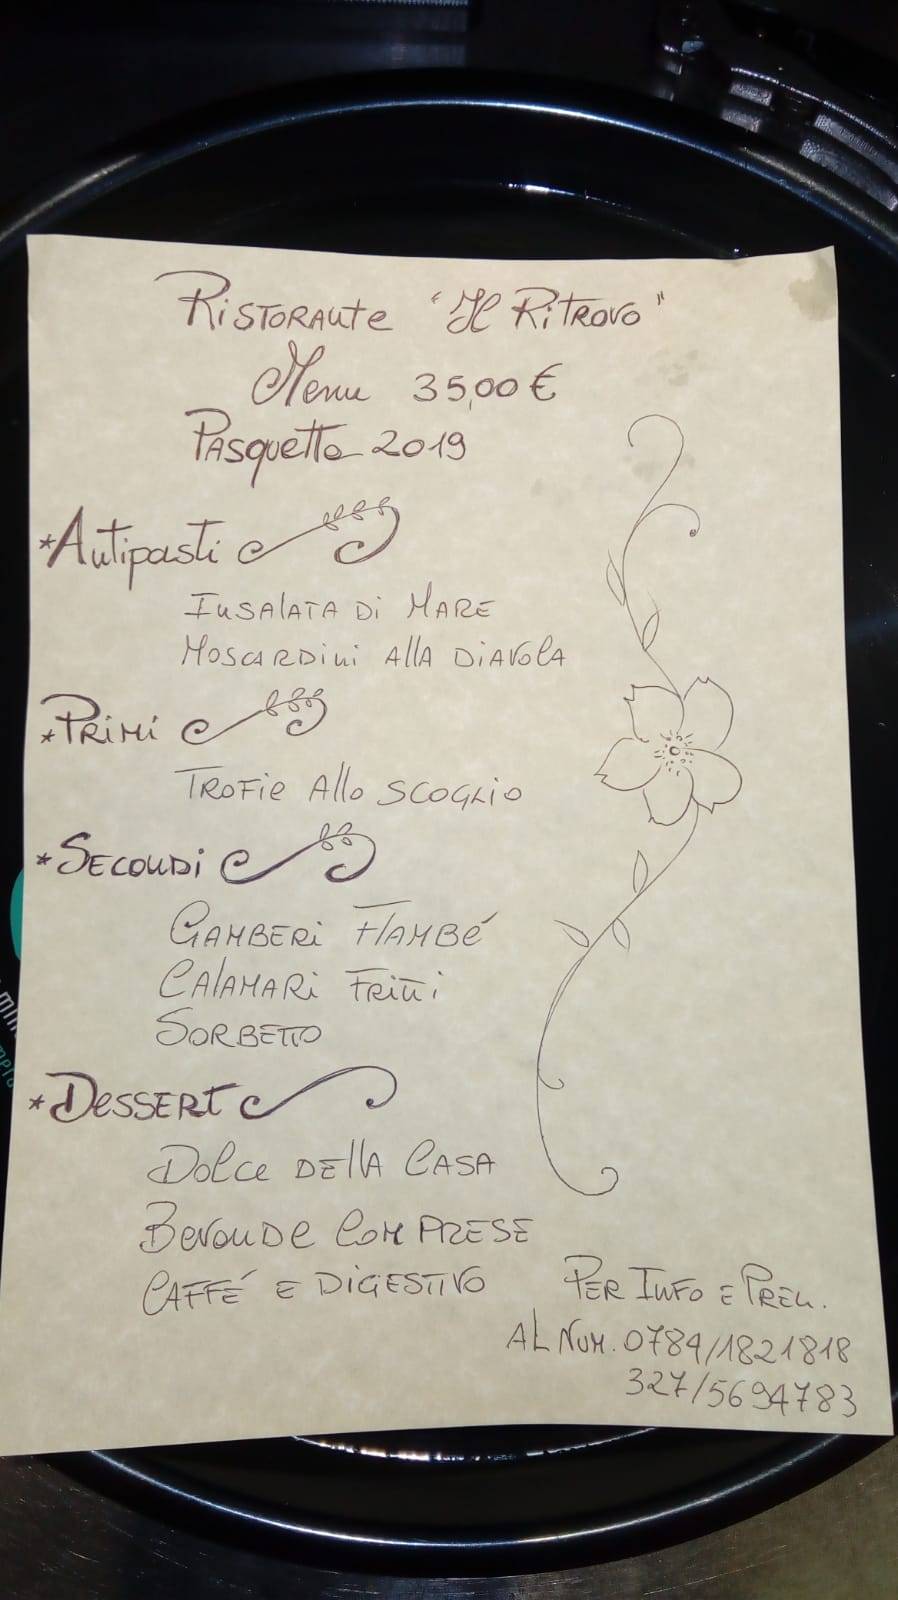 Ristorante "Il Ritrovo"
Menu 35,00 €
Pasquetta 2019
*Antipasti
Insalata di Mare
Moscardini alla Diavola
*Primi
Trofie allo Scoglio
*Secondi
Gamberi Flambé
Calamari Fritti
Sorbetto
*Dessert
Dolce della Casa
Bevande Comprese
Caffé e Digestivo
Per Info e Pren.
al Num. 0784/1821818
327/5694783